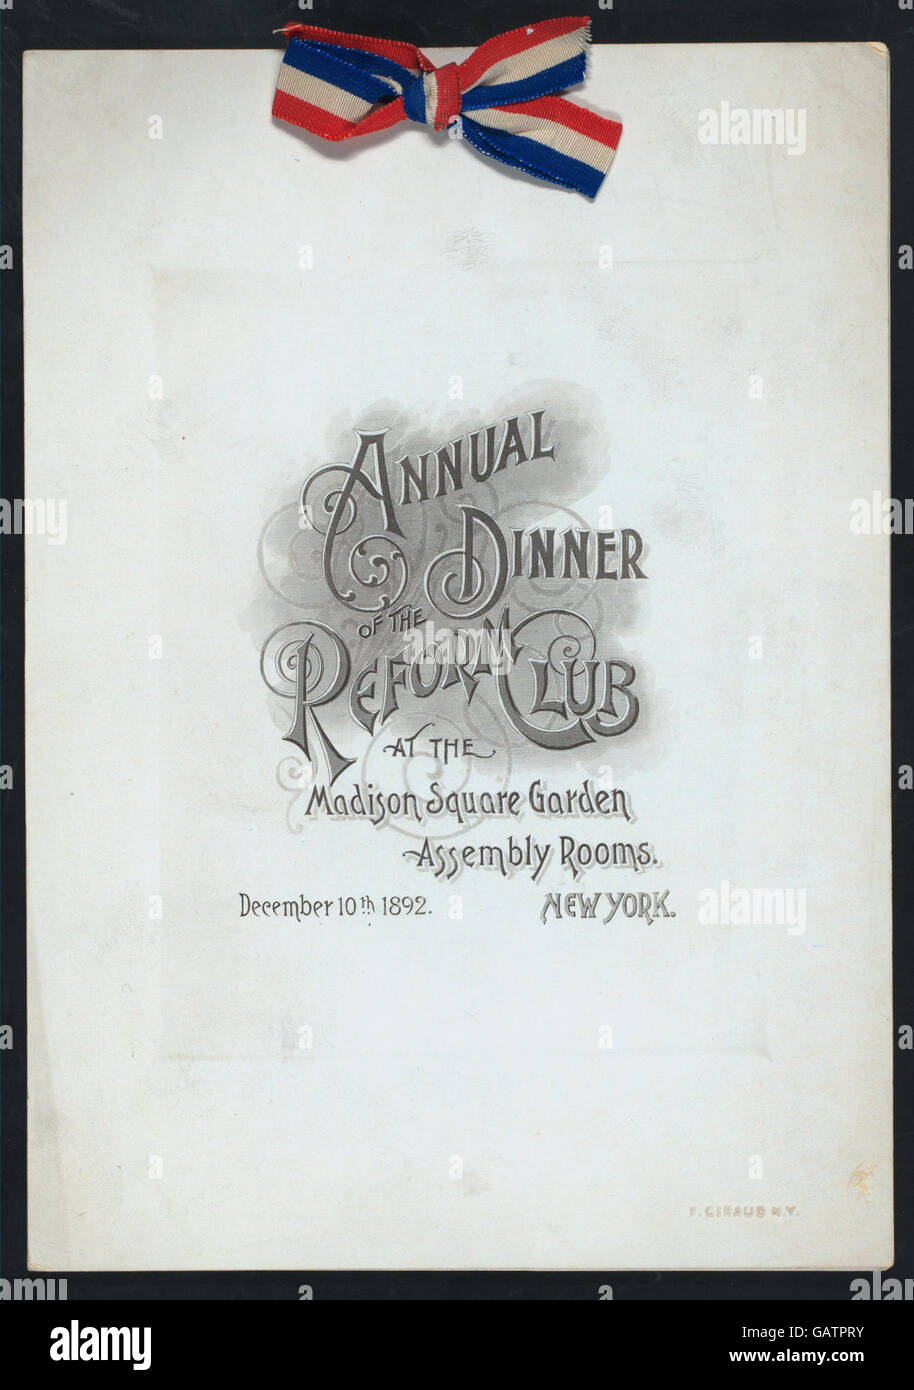 ANNUAL
DINNER
OF THE
REFORM CLUB
AT THE
Madison Square Garden
Assembly Rooms.
December 10th 1892.
NEW YORK.
F. GIRAUD N.Y.
alamy
alamy
Image ID: GATPRY
www.alamy.com